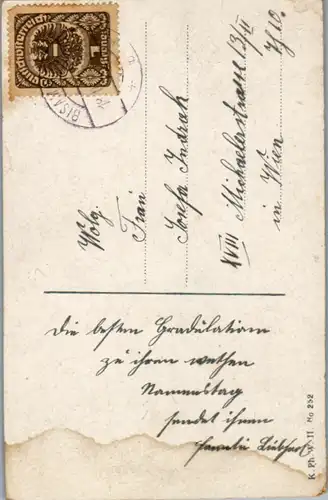 Deutschösterreich
1
Wohlg.
Frau
Josefa Indrak
XVIII Michaelerstrasse 13/II
in Wien
Die besten Gradulationen
zu ihren werthen
Namenstag
sendet ihnen
Familie
K. Ph. W. II. No 252